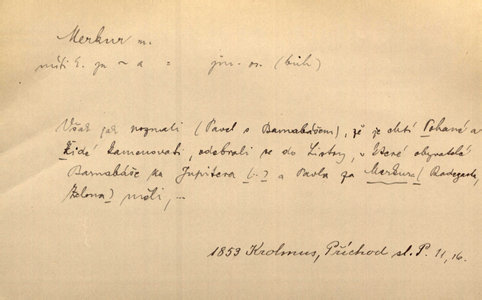 Merkur m.
míti k. za ~ a = jm. os. (bůh)
Však jak poznali (Pavel s Barnabášem), že je chtí Pohané a
Židé kamenovati, odebrali se do Listry, v které obyvatelé
Barnabáše za Jupitera (..) a Pavla za Merkura (Radegasta,
) měli, ...
1853 Krolmus, Příchod sl. P. 11, 16.